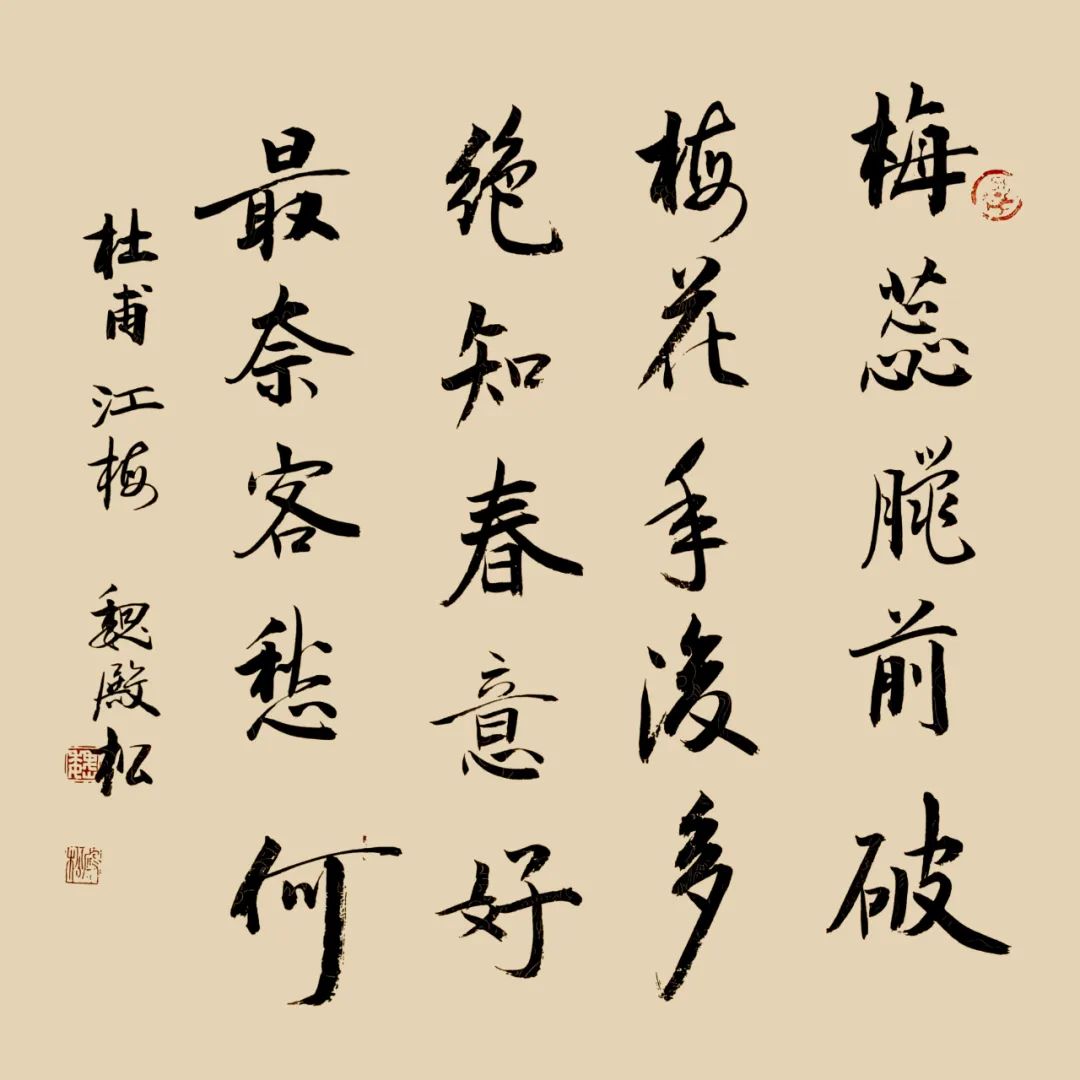 梅蕊臘前破
梅花年後多
絶知春意好
最奈客愁何
杜甫 江梅 魏殿松